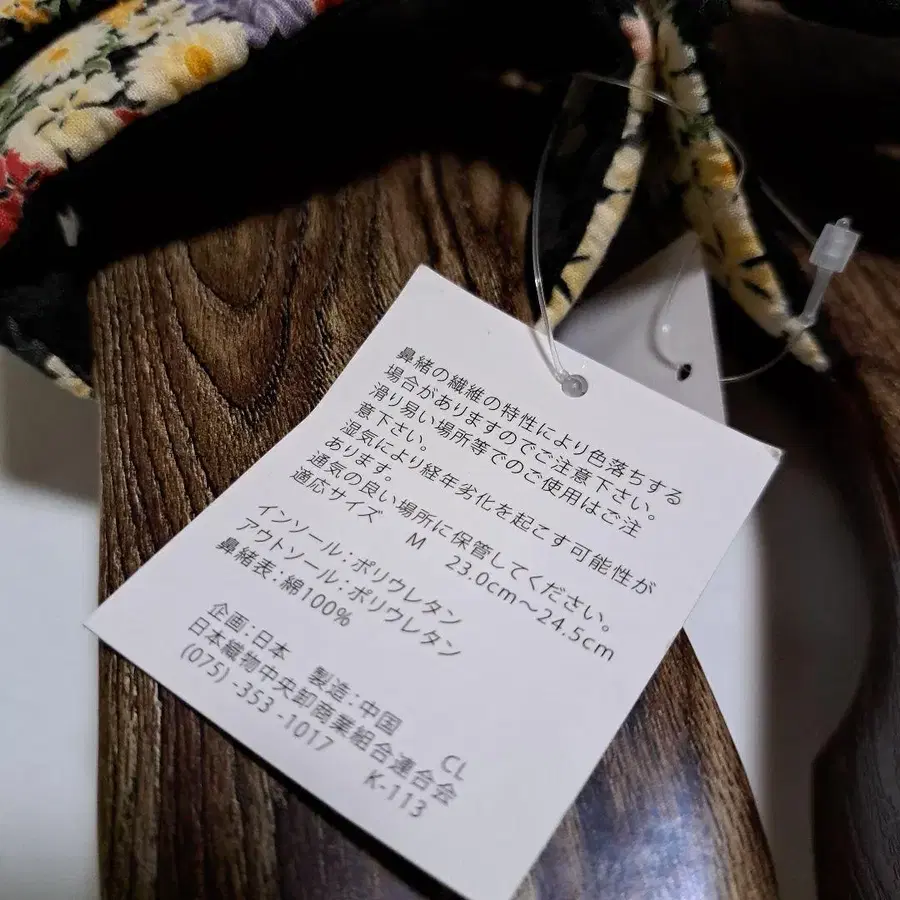 鼻緒の繊維の特性により色落ちする
場合がありますのでご注意下さい。
滑り易い場所等でのご使用はご注
意下さい。
湿気により経年劣化を起こす可能性が
あります。
通気の良い場所に保管してください。
適応サイズ M 23.0cm～24.5cm
インソール：ポリウレタン
アウトソール：ポリウレタン
鼻緒表：綿100%
企画：日本 製造：中国 CL
日本織物中央卸商業組合連合会
(075) -353 -1017 K-113